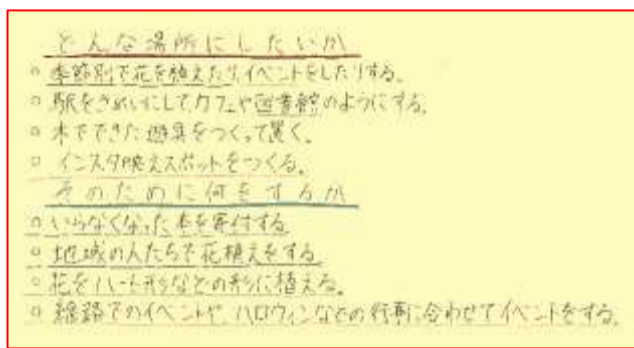 どんな場所にしたいか
○季節別で花を植えたり、イベントをしたりする。
○駅をきれいにしてカフェや図書館のようにする。
○木でできた遊具をつくって置く。
○インスタ映えスポットをつくる。
そのために何をするか
○いらなくなった本を寄付する
○地域の人たちで花植えをする
○花をハート形などの形に植える。
○線路でのイベントや、ハロウィンなどの行事に合わせてイベントをする。